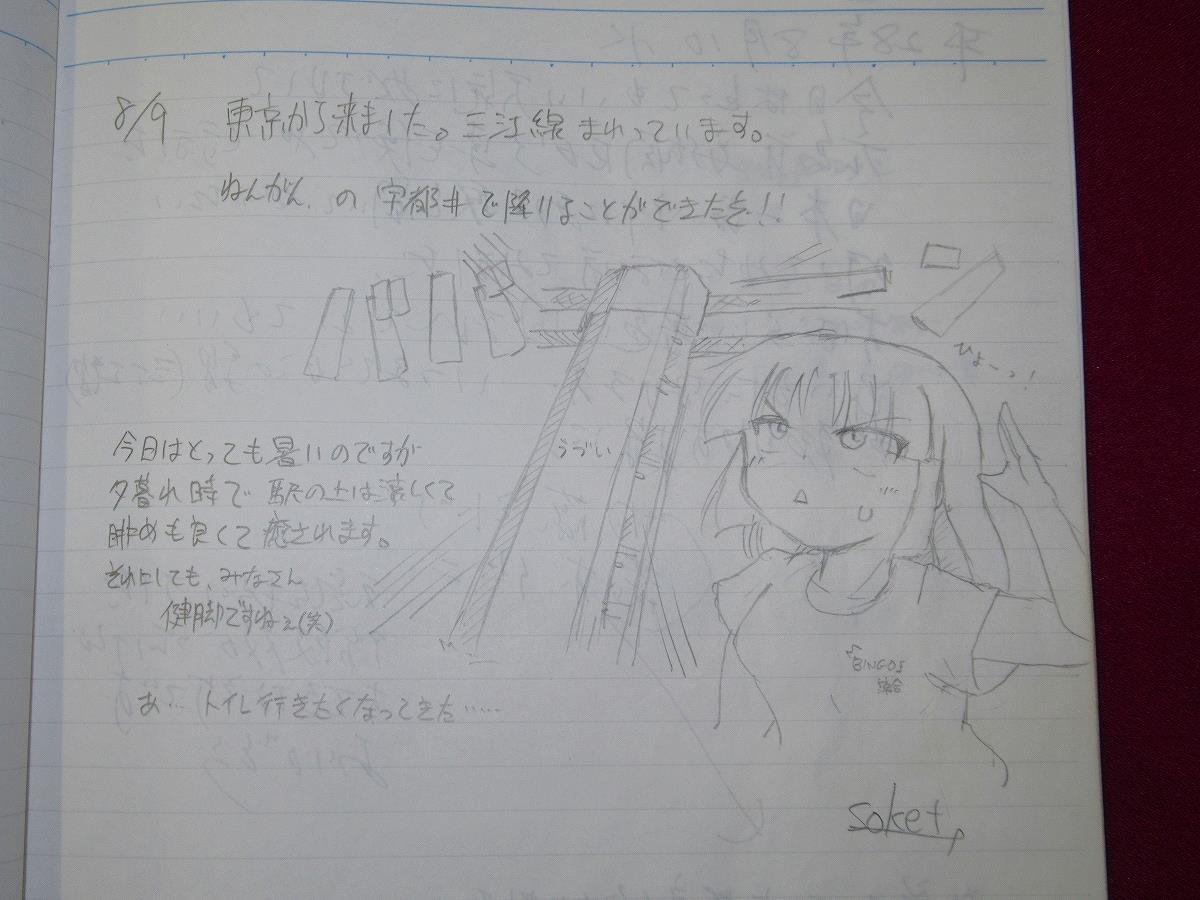 8/9 東京から来ました。三江線まわっています。
ねんがんの宇都井で降りることができたぞ!!
ひょーっ!
うづい
今日はとっても暑いのですが
夕暮れ時で駅の上は涼しくて
眺めも良くて癒されます。
それにしても、みなさん
健脚ですねぇ(笑)
BINGOS
あ…トイレ行きたくなってきた……
soket